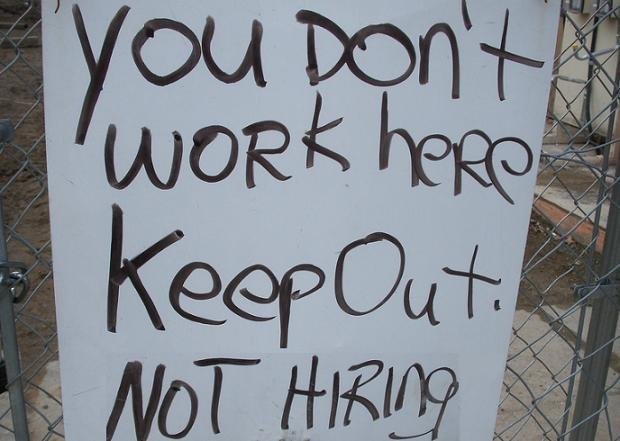 You Don't
WORK here
Keep Out.
NOT HIRing